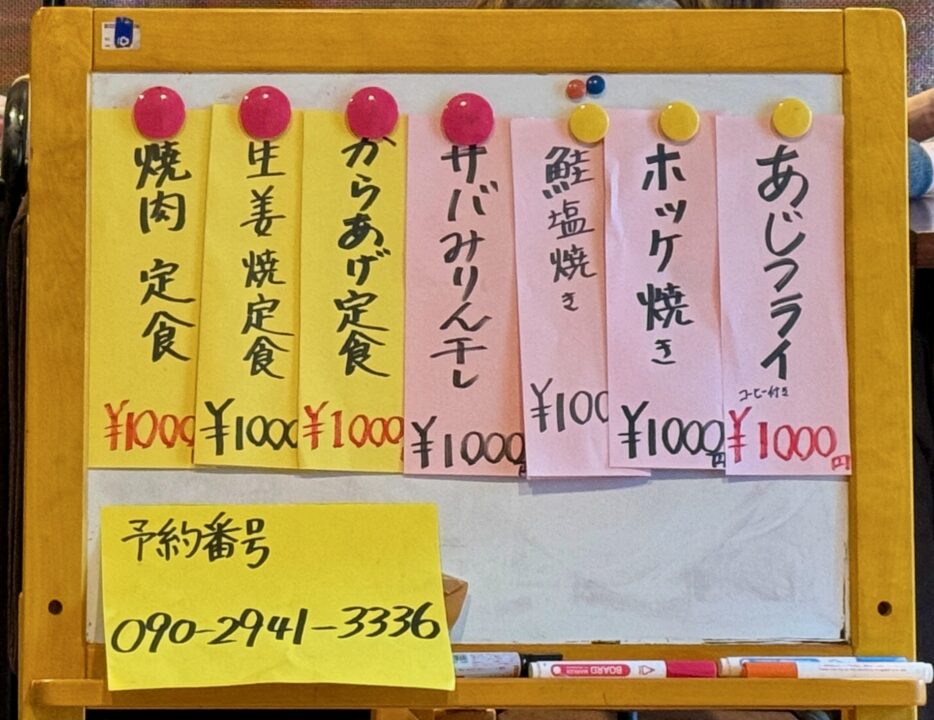 あじフライ
コーヒー付き
¥1000円
ホッケ焼き
¥1000円
鮭塩焼き
¥100
サバみりん干し
¥1000
からあげ定食
¥1000
生姜焼定食
¥1000
焼肉 定食
¥1000
予約番号
090-2941-3336
BOARD